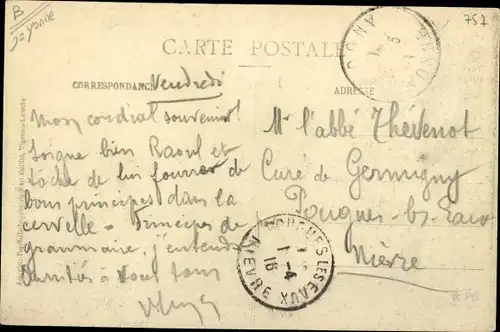 B
Yonne
757
CARTE POSTALE
CORRESPONDANCE
ADRESSE
Vendredi
Mon cordial souvenir!
Soigne bien Raoul et
tâche de lui fourrer de
bons principes dans la
cervelle - Principes de
grammaire, j'entends
Amitiés à vous tous
Mr l'abbé Thévenot
Curé de Germigny
Pougues-les-Eaux
Nièvre
POUGUES-LES-EAUX
1-4
16
NIEVRE